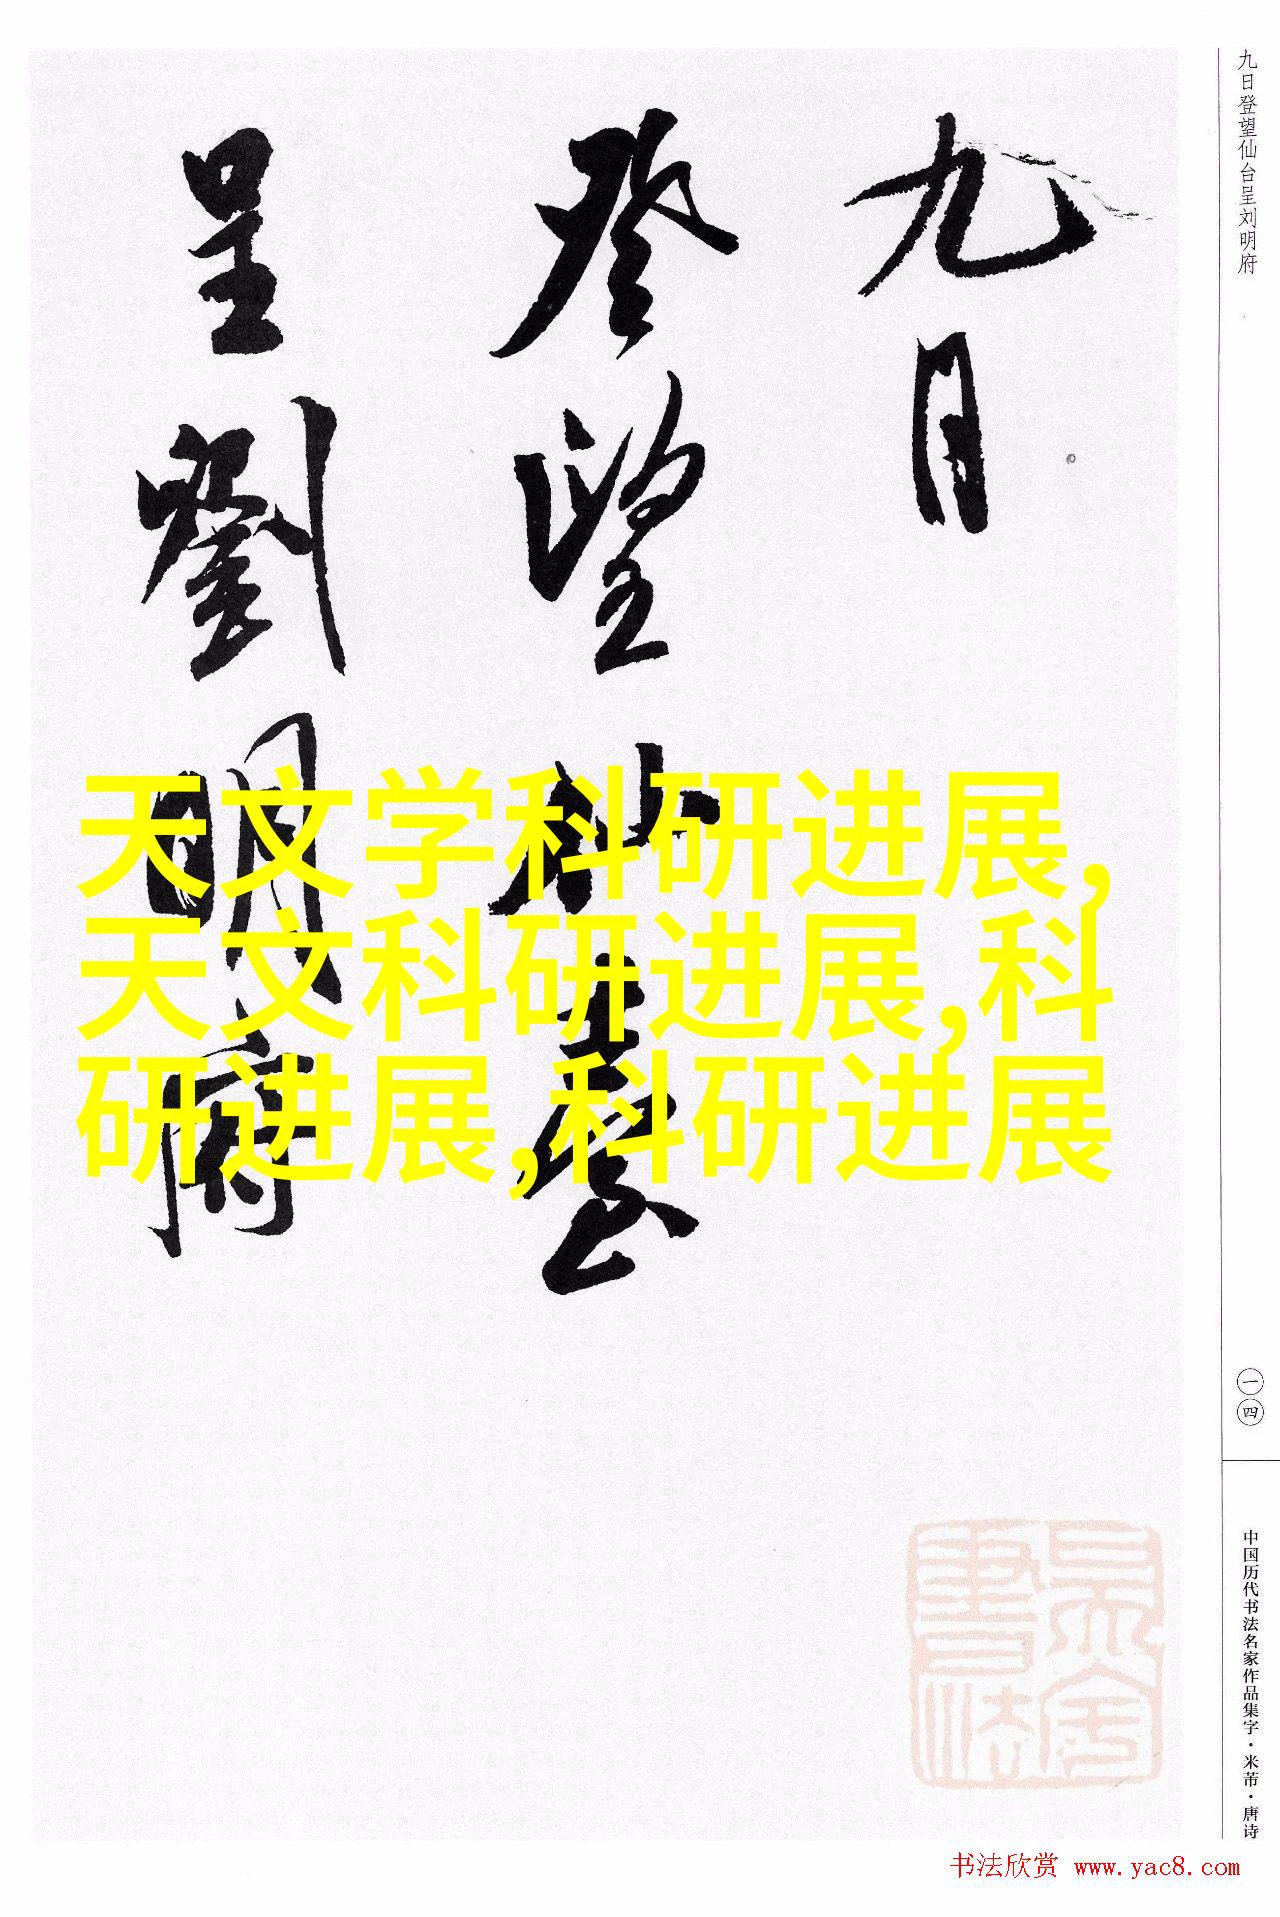 九日
登望仙臺
呈劉明府
天文学科研进展,
天文科研进展,科
研进展,科研进展
九日登望仙台呈刘明府
一四
中国历代书法名家作品集字·米芾·唐诗
书法欣赏 www.yac8.com